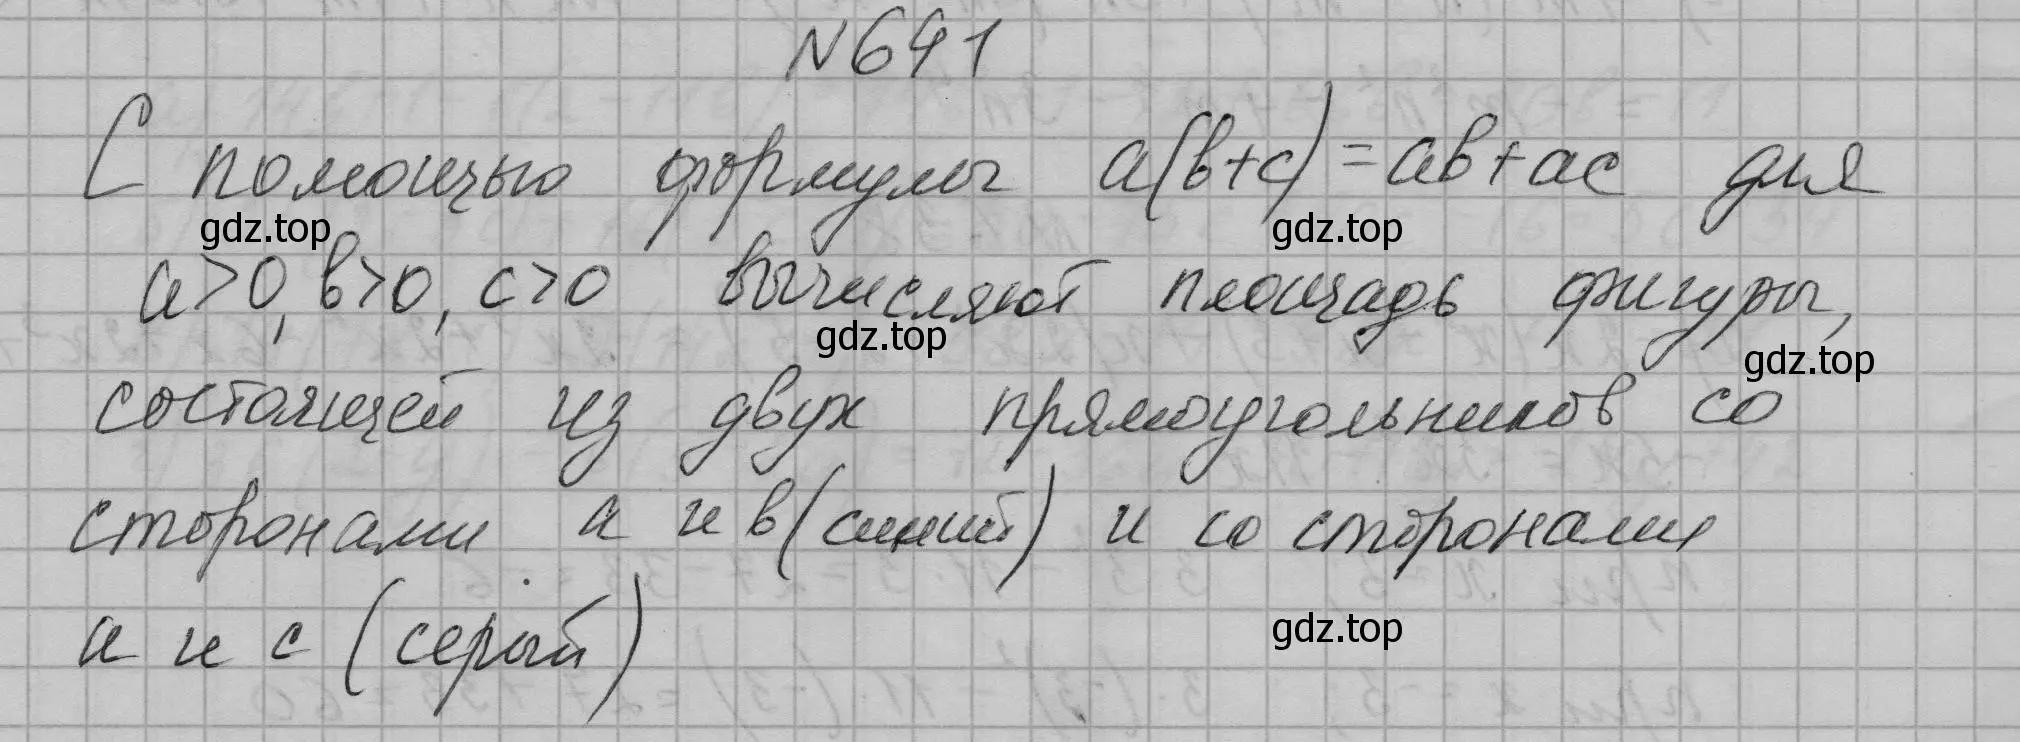 N641
С помощью формулы a(b+c)=ab+ac для
gdz.top gdz.top
a>0, b>0, c>0 вычисляют площадь фигуры,
gdz.top gdz.top
состоящей из двух прямоугольников со
сторонами a и b (синий) и со сторонами
a и c (серый)
gdz.top